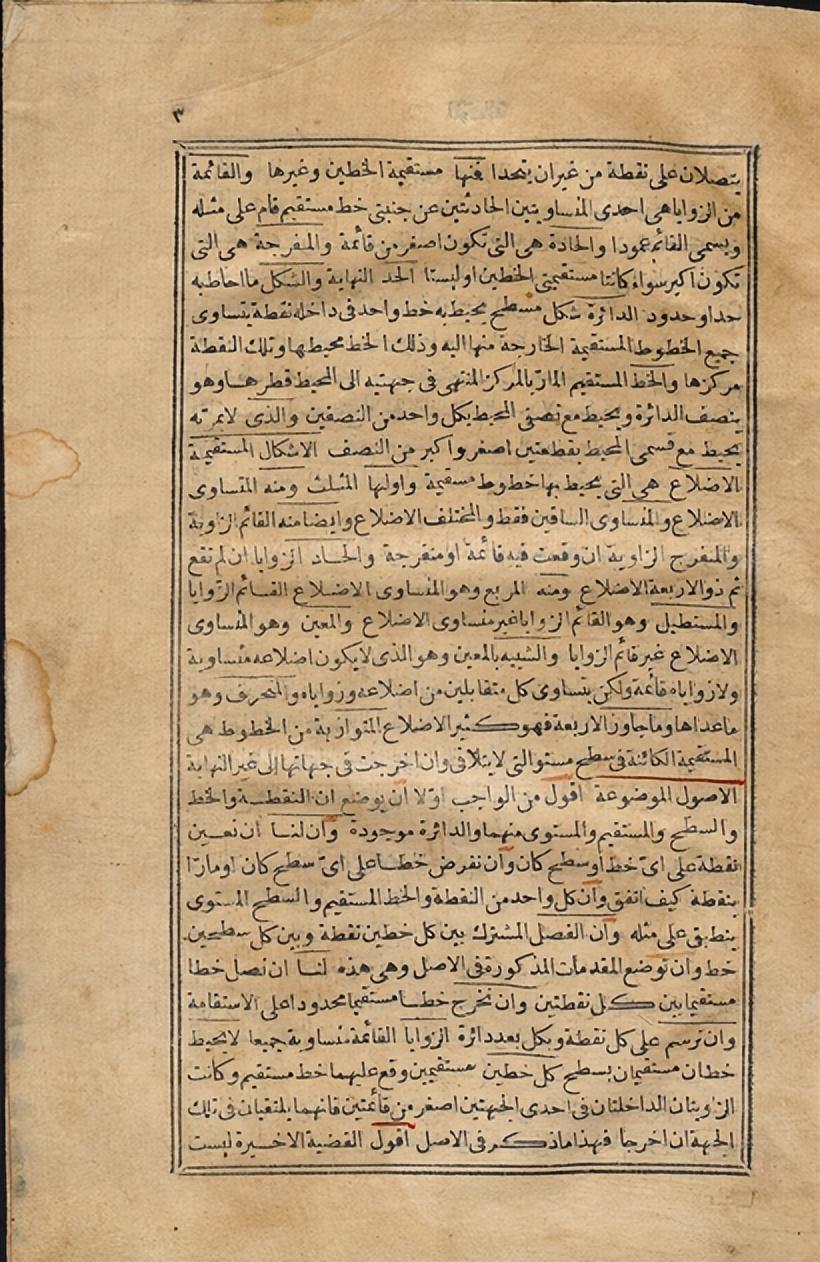 ٣
يتصلان على نقطة من غير ان يتحدا فمنها مستقيمة الخطين وغيرها والقائمة
من الزوايا هى احدى المتساويتين الحادثتين عن جنبتى خط مستقيم قام على مثله
ويسمى القائم عمودا والحادة هى التى تكون اصغر من قائمة والمنفرجة هى التى
تكون اكبر سواء كانتا مستقيمتى الخطين او ليستا الحد النهاية والشكل ما احاط به
حد او حدود الدائرة شكل مسطح يحيط به خط واحد فى داخله نقطة يتساوى
جميع الخطوط المستقيمة الخارجة منها اليه وذلك الخط محيطها وتلك النقطة
مركزها والخط المستقيم المار بالمركز المنتهى فى جهتيه الى المحيط قطرها وهو
ينصف الدائرة ويحيط مع نصفى المحيط بكل واحد من النصفين والذى لا يمر به
يحيط مع قسمى المحيط بقطعتين اصغر واكبر من النصف الاشكال المستقيمة
الاضلاع هى التى يحيط بها خطوط مستقيمة واولها المثلث ومنه المتساوى
الاضلاع والمتساوى الساقين فقط والمختلف الاضلاع وايضا منه القائم الزاوية
والمنفرج الزاوية ان وقعت فيه قائمة او منفرجة والحاد الزوايا ان لم تقع
ثم ذو الاربعة الاضلاع ومنه المربع وهو المتساوى الاضلاع القائم الزوايا
والمستطيل وهو القائم الزوايا غير متساوى الاضلاع والمعين وهو المتساوى
الاضلاع غير قائم الزوايا والشبيه بالمعين وهو الذى لا يكون اضلاعه متساوية
ولا زواياه قائمة ولكن يتساوى كل متقابلين من اضلاعه وزواياه والمنحرف وهو
ما عداها وما جاوز الاربعة فهو كثير الاضلاع المتوازية من الخطوط هى
المستقيمة الكائنة فى سطح مستو التى لا يتلاقى وان اخرجت فى جهاتها الى غير النهاية
الاصول الموضوعة اقول من الواجب اولا ان يوضع ان النقطة والخط
والسطح والمستقيم والمستوى منهما والدائرة موجودة وان لنا ان نعين
نقطة على اىّ خط او سطح كان وان نفرض خطا على اىّ سطح كان او مارّا
بنقطة كيف اتفق وان كل واحد من النقطة والخط المستقيم والسطح المستوى
ينطبق على مثله وان الفصل المشترك بين كل خطين نقطة وبين كل سطحين
خط وان توضع المقدمات المذكورة فى الاصل وهى هذه لنا ان نصل خطا
مستقيما بين كل نقطتين وان نخرج خطا مستقيما محدودا على الاستقامة
وان نرسم على كل نقطة وبكل بعد دائرة الزوايا القائمة متساوية جميعا لا يحيط
خطان مستقيمان بسطح كل خطين مستقيمين وقع عليهما خط مستقيم وكانت
الزاويتان الداخلتان فى احدى الجهتين اصغر من قائمتين فانهما يلتقيان فى تلك
الجهة ان اخرجا فهذا ما ذكر فى الاصل اقول القضية الاخيرة ليست